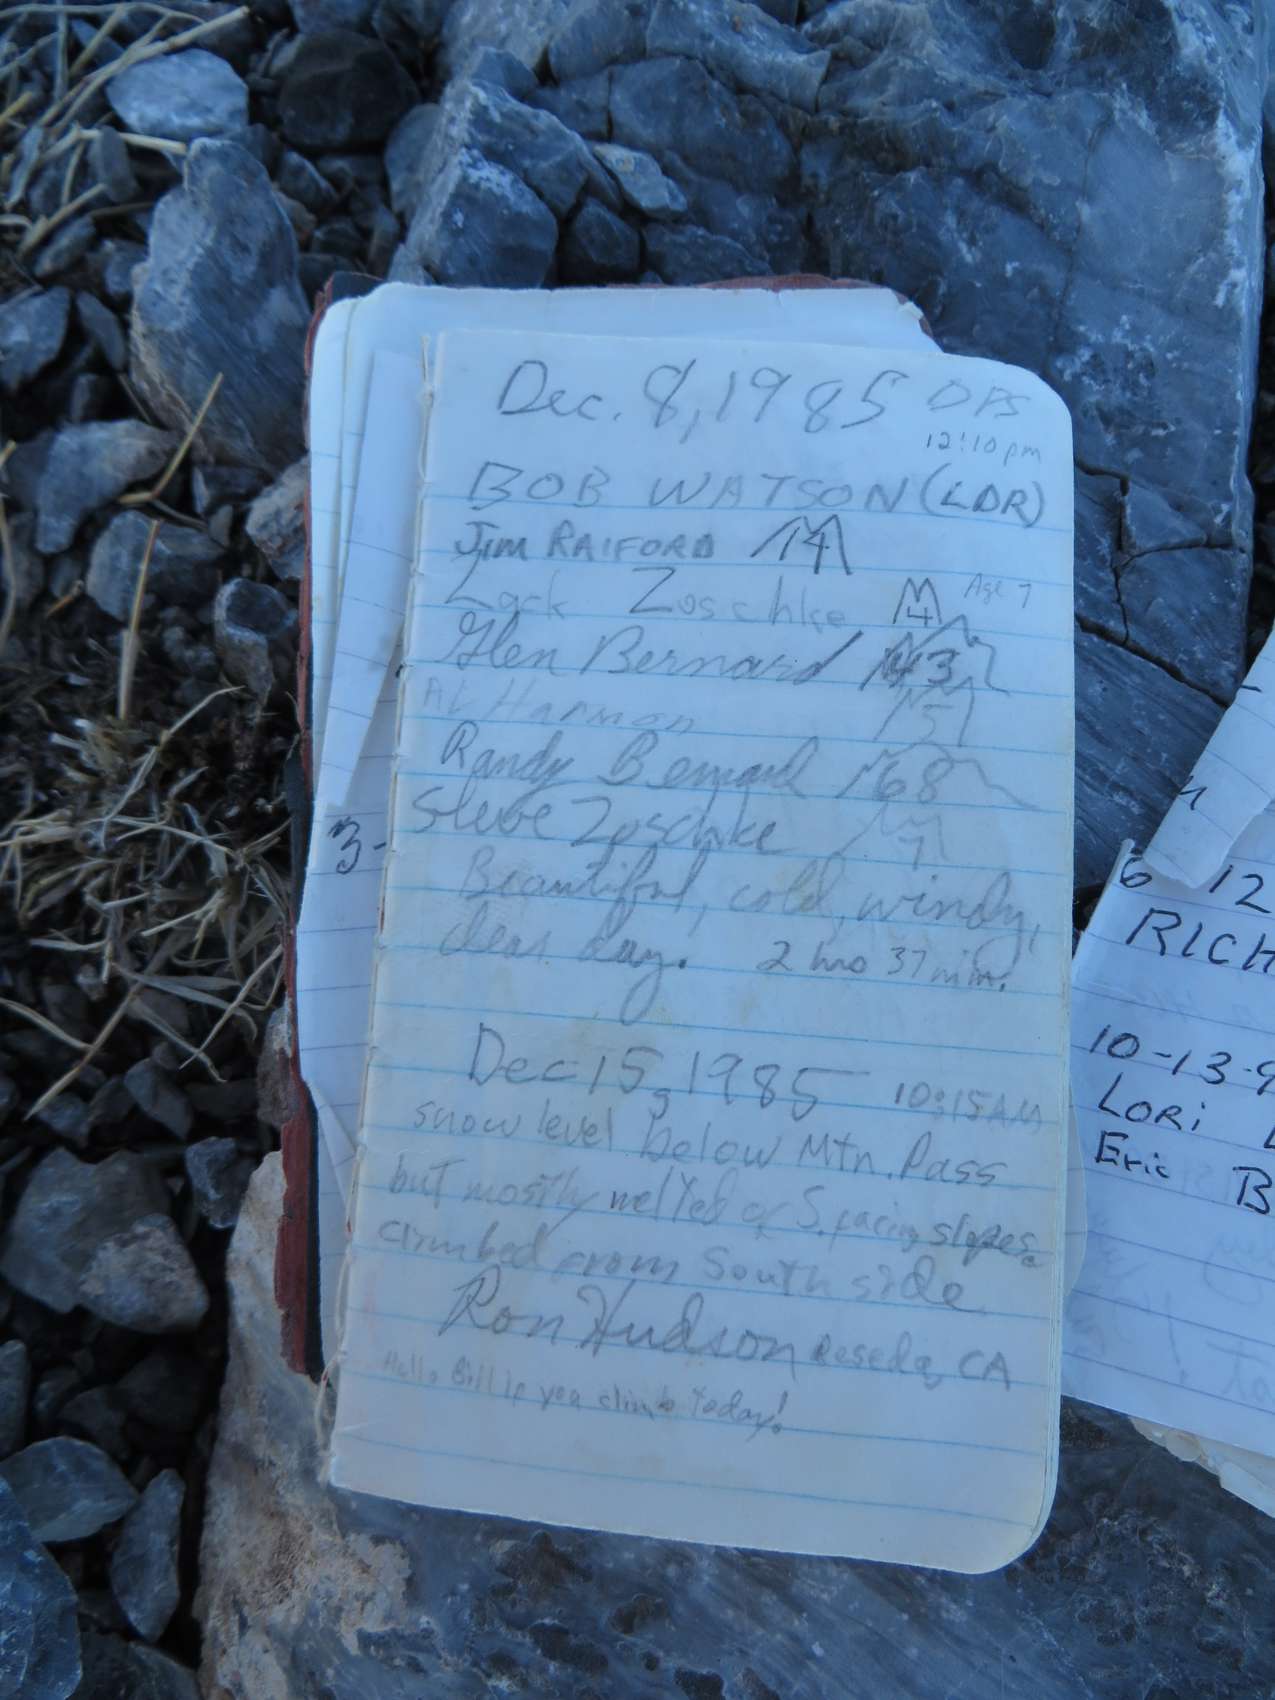 Dec. 8, 1985 DPS
12:10 pm
BOB WATSON (LDR)
JIM RAIFORD 14
Zack Zoschke 4 Age 7
Glen Bernard 43
Al Harmon 5
Randy Bernard 68
Steve Zoschke 7
Beautiful, cold, windy,
clear day. 2 hrs 37 min.
Dec 15, 1985 10:15AM
snow level below Mtn. Pass
but mostly melted on S. facing slopes.
climbed from South side
Ron Hudson Reseda, CA
Hello Bill if you climb today!
3-
6 12
RICH
10-13-9
LORi
Eric B